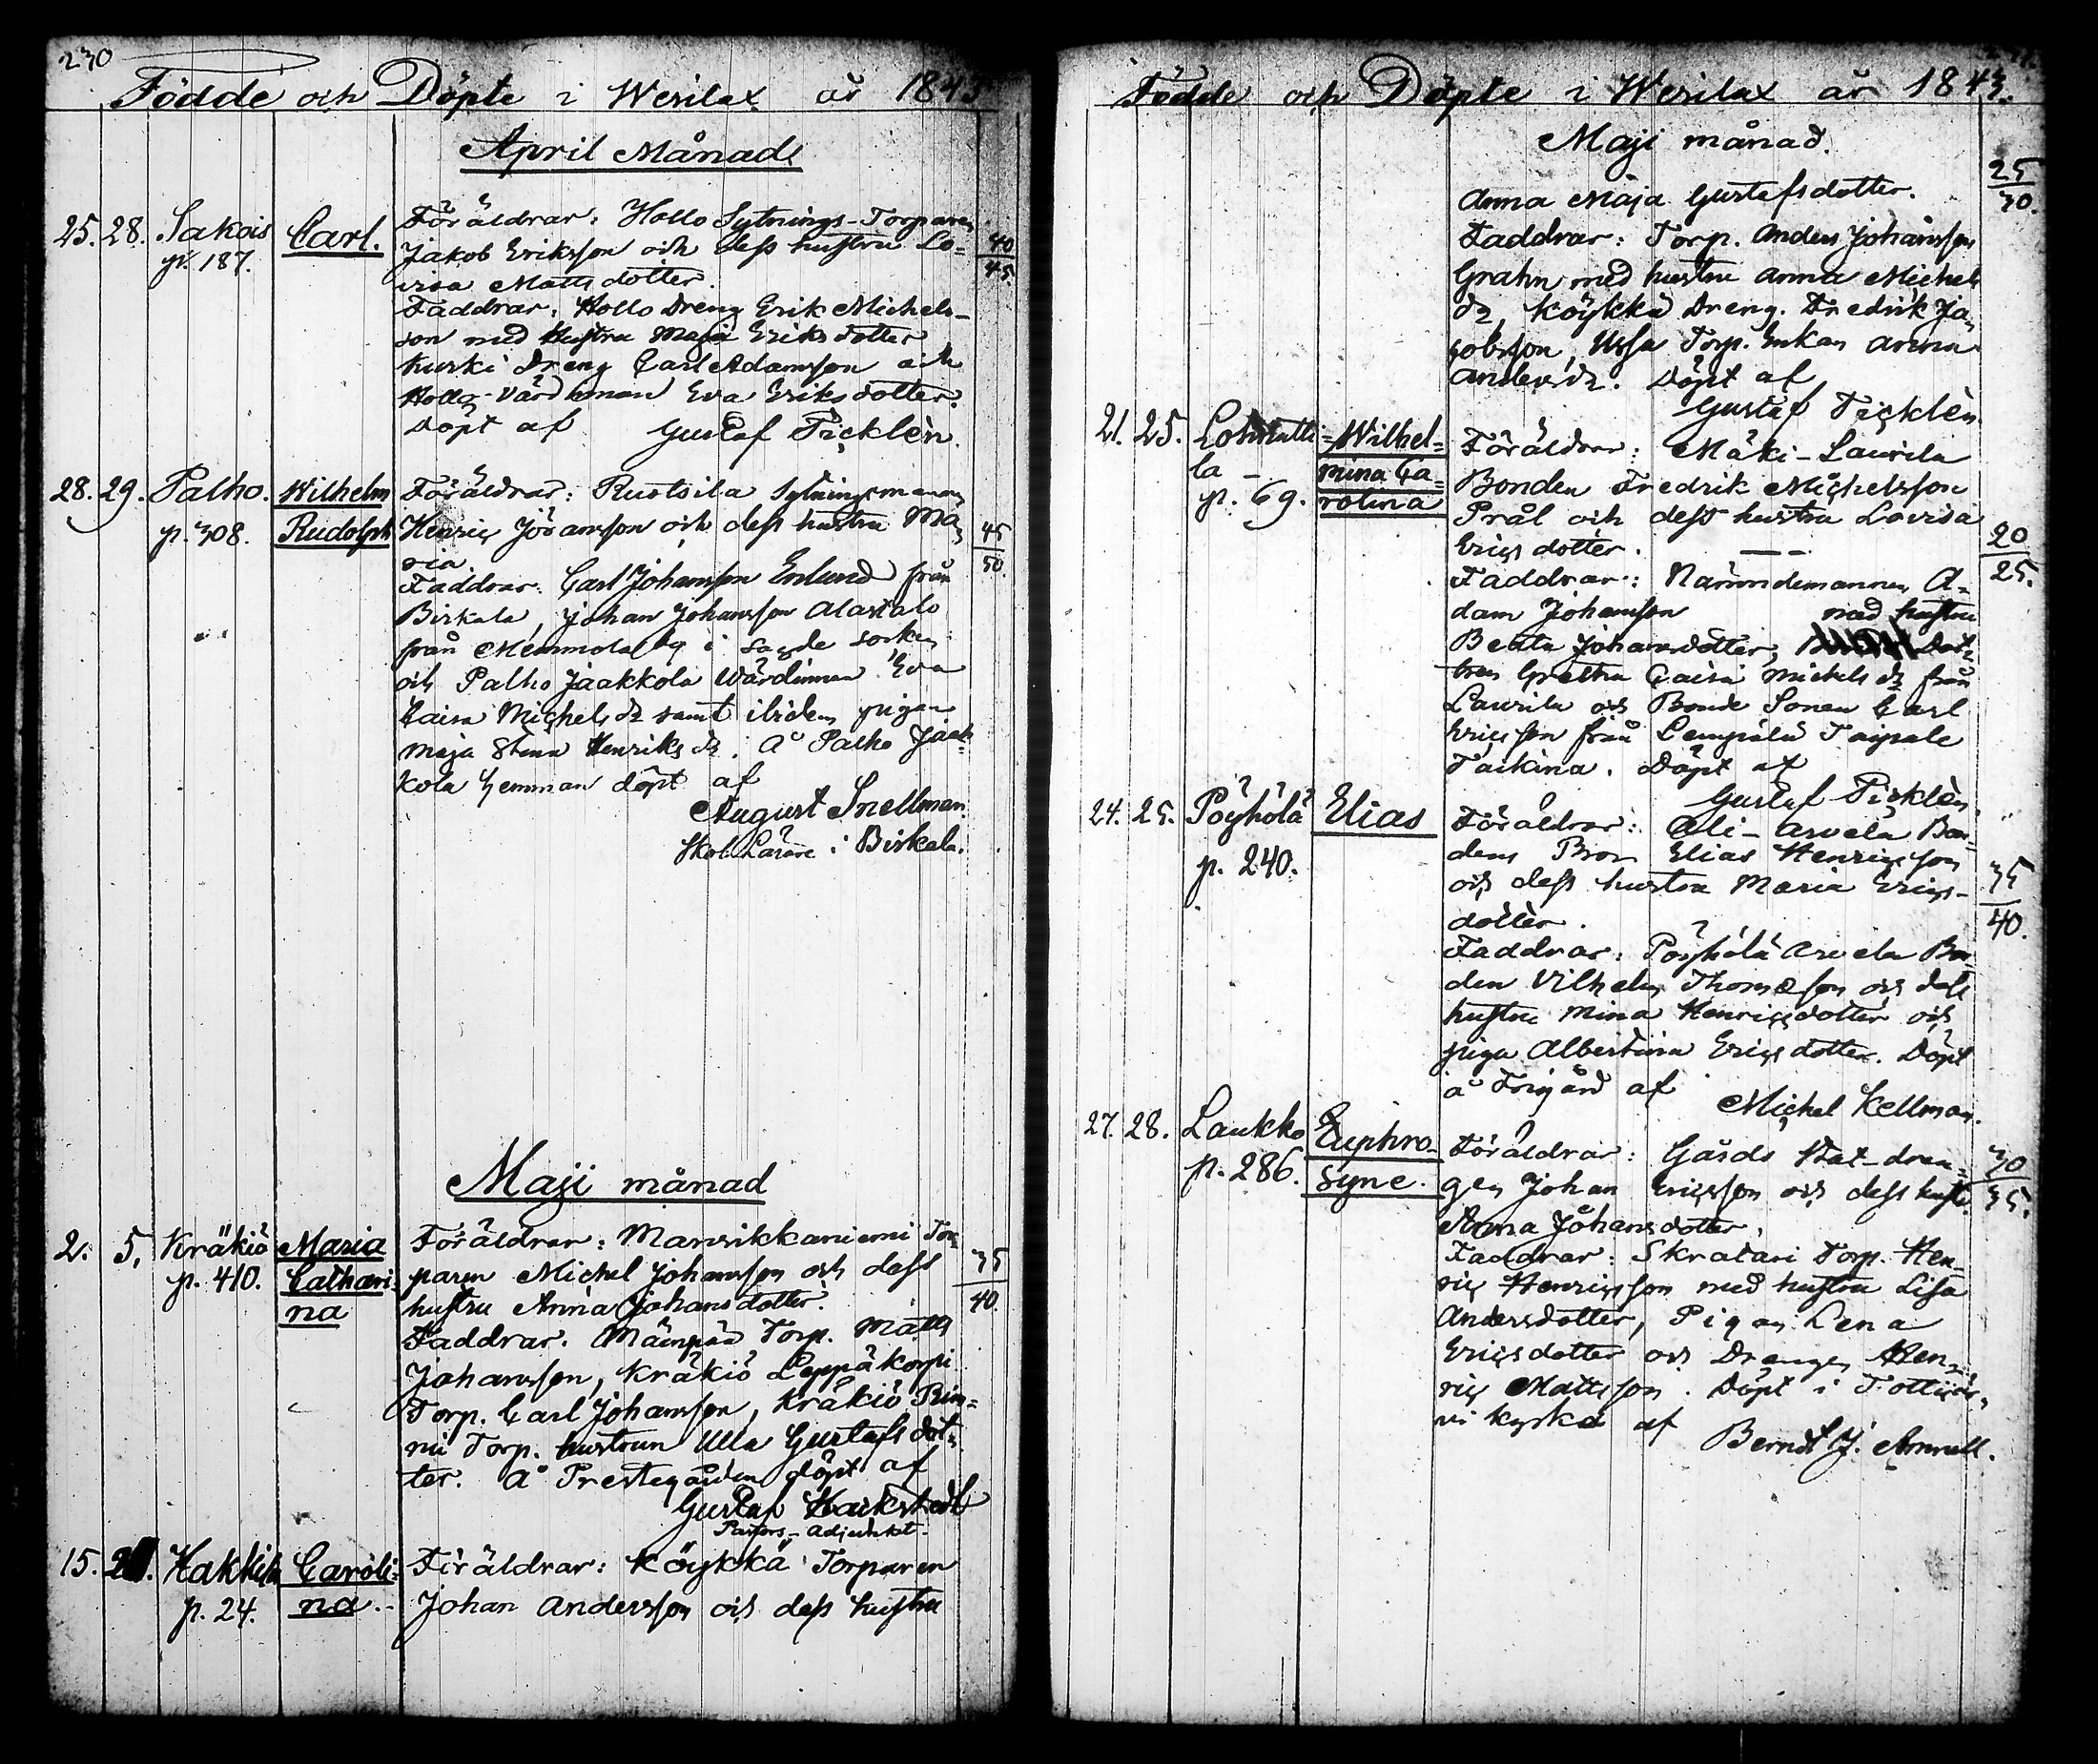 230
Födde och Döpte i Wesilax år 1843
April Månad
25. 28. Sakois Carl. Föräldrar: Hollo Sytnings-Torparen
p. 187. Jakob Eriksson och dess hustru Lo- 40
visa Matts dotter. 45.
Faddrar: Hollo Dreng Erik Michels-
son med Hustru Maja Eriks dotter
Kurki Dreng Carl Adamsson och
Hollo Värdinnan Eva Eriks dotter.
Döpt af Gustaf Ticklèn.
28. 29. Palho. Wilhelm Föräldrar: Ruotsila Sytningsmannen
p. 308. Rudolph Henric Jöransson och dess hustru Ma- 45
ria. 50.
Faddrar: Carl Johansson Enlund från
Birkala, Johan Johansson Alastalo
från Memmola by i sagde socken
och Palho Jaakkola Värdinnan Eva
Caisa Michels dr samt ibidem pigan
Maja Stina Henriks dr. Å Palho Jaak-
kola hemman döpt af
August Snellman.
Skol. Lärare i Birkala.
Maji månad
2. 5. Kräkiö Maria Föräldrar: Mansikkaniemi Tor-
p. 410. Cathari- paren Michel Johansson och dess 35
na hustru Anna Johans dotter. 40.
Faddrar: Mäenpää Torp. Matts
Johansson, Kräkiö Leppäkorpi
Torp. Carl Johansson, Kräkiö Rin-
ni Torp. hustrun Ulla Gustafs dot-
ter. Å Prestegården döpt af
Gustaf Hackstedt
Pastors-Adjunkt.
15. Hakkila Caroli- Föräldrar: Köykkä Torparen
p. 24. na. Johan Andersson och dess hustru
Födde och Döpte i Wesilax år 1843.
Maji månad.
Anna Maja Gustafsdotter. 25
30.
Faddrar: Torp. Anders Johansson
Grahn med hustru Anna Michels
dr, Köykkä Dreng. Fredrik Ja-
cobsson, Ussa Torp. Enkan Anna
Andersdr. Döpt af
Gustaf Ticklèn.
21. 25. Wilhel- Föräldrar: Mäki-Laurila
la mina Ca- Bonden Fredrik Michelsson
p. 69. rolina Prål och dess hustru Lovisa
Erics dotter. 20
Faddrar: Nämndemannen A- 25.
dam Johansson med hustru
Beata Johansdotter, Dot-
tren Gretha Caisa Michels dr från
Laurila och Bonde Sonen Carl
Ericsson från Lempälä Taipale
Taikina. Döpt af
Gustaf Ticklèn.
24. 25. Pöyhölä Elias Föräldrar: Ali-Arvela Bon-
p. 240. dens Bror Elias Henricsson
och dess hustru Maria Erics- 35
dotter. 40.
Faddrar: Pöyhölä Arvela Bon-
den Vilhelm Thomæson och dess
hustru Mina Henricsdotter och
piga Albertina Ericsdotter. Döpt
å Frigård af
Michel Kellman.
27. 28. Laukko Euphro- Föräldrar: Gårds Stat-dren- 30
p. 286. syne. gen Johan Ericsson och dess hustr. 35.
Anna Johansdotter.
Faddrar: Skratari Torp. Hen-
ric Henricsson med hustru Lisa
Andersdotter, Pigan Lena
Ericsdotter och Drengen Hen-
ric Mattsson. Döpt i Tottijär-
vi kyrka af
Berndt J.